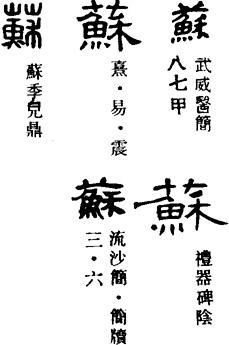 蘇
武威醫簡
八七甲
蘇
禮器碑陰
蘇
熹·易·震
蘇
流沙簡·簡牘
三·六
蘇
蘇季兒鼎